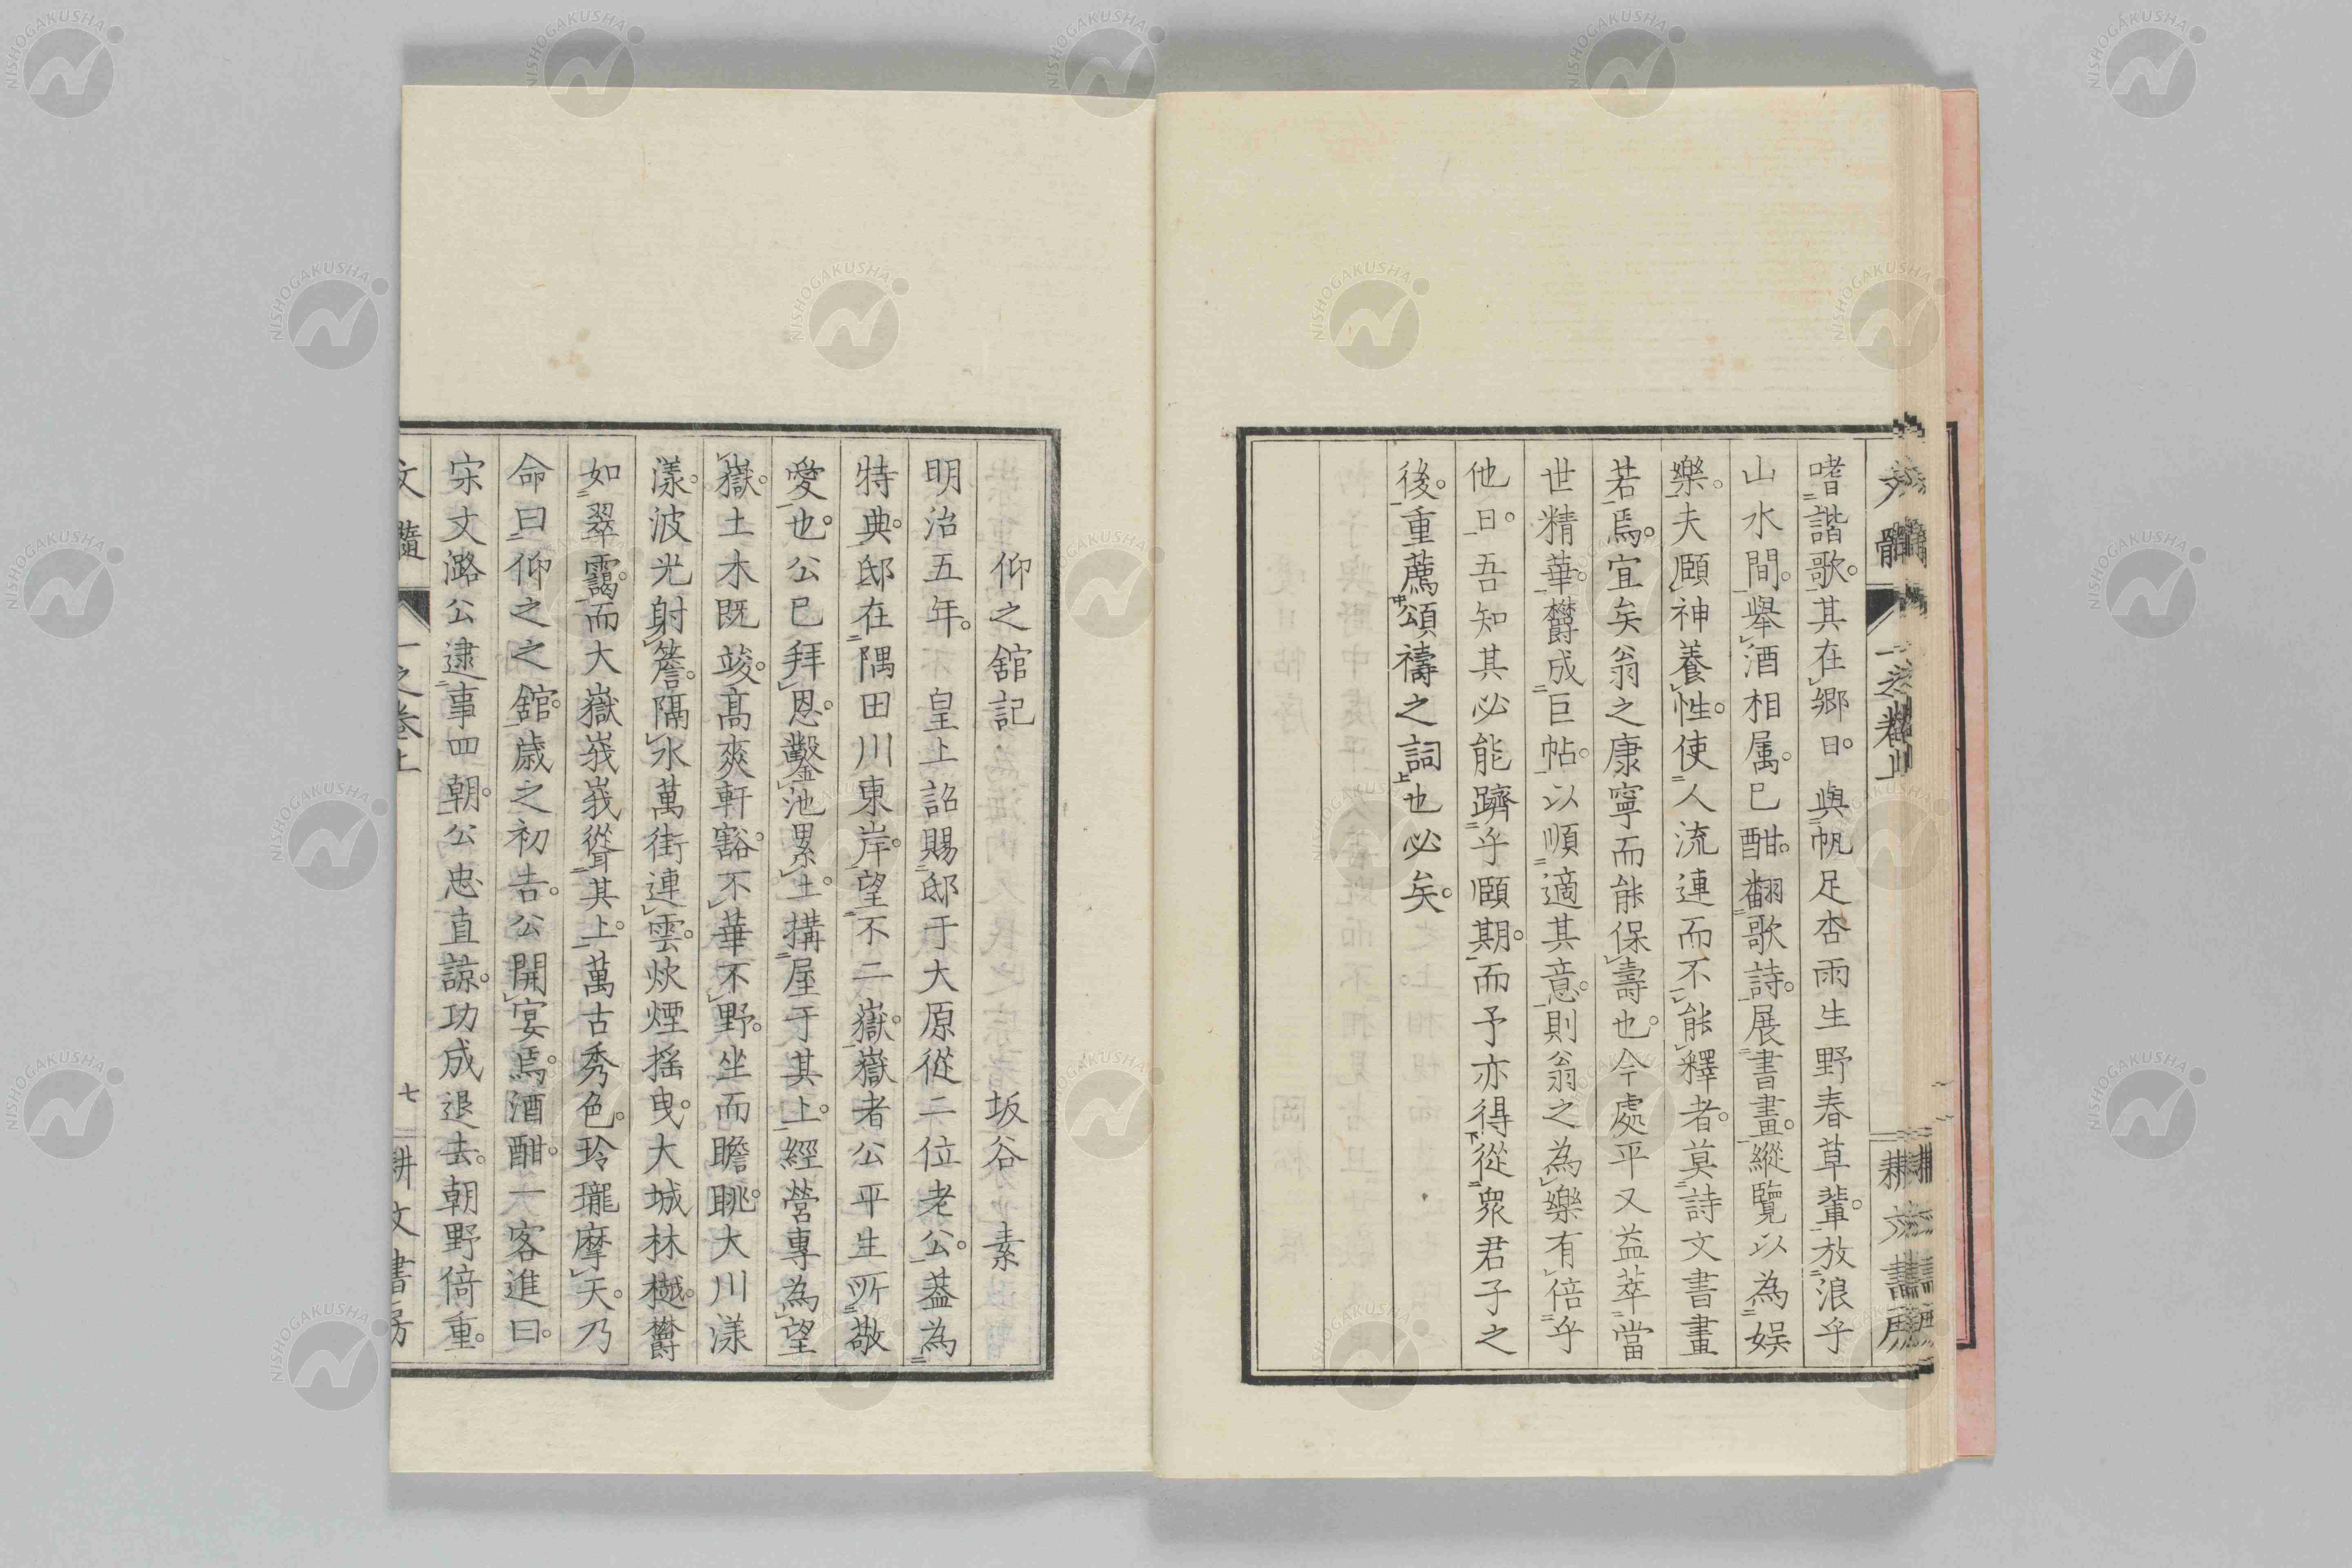 嗜諧歌。其在郷日。與帆足杏雨生野春草輩。放浪乎
山水間。擧酒相属。已酣。翻歌詩。展書畫。縱覽以為娯
樂。夫頤神養性。使人流連而不能釋者。莫詩文書畫
若焉。宜矣翁之康寧而能保壽也。今處平又益萃當
世精華。欝成巨帖。以順適其意。則翁之為樂有倍乎
他日。吾知其必能躋乎頤期。而予亦得從衆君子之
後。重薦頌禱之詞也必矣。
仰之舘記 坂谷 素
明治五年。皇上詔賜邸于大原從二位老公。葢為
特典。邸在隅田川東岸。望不二嶽。嶽者公平生所敬
愛也。公已拜恩。鑿池累土。搆屋于其上。經營專為望
嶽。土木既竣。髙爽軒豁。不華不野。坐而瞻眺。大川漾
漾。波光射簷。隔水萬街連雲。炊煙揺曳。大城林樾。欝
如翠靄。而大嶽峩峩從聳其上。萬古秀色。玲瓏摩天。乃
命曰仰之之舘。歳之初吉。公開宴焉。酒酣。一客進曰。
宋文潞公逮事四朝。公忠直諒。功成退去。朝野倚重。
文髓 一之巻上 七 耕文書房